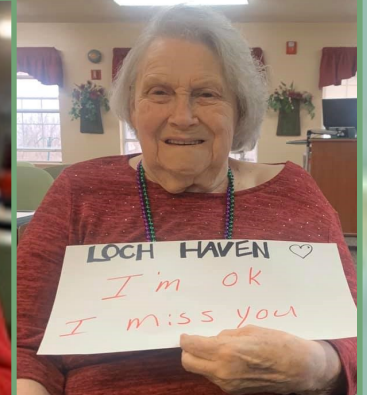 LOCH HAVEN ♡
I'm ok
I miss you